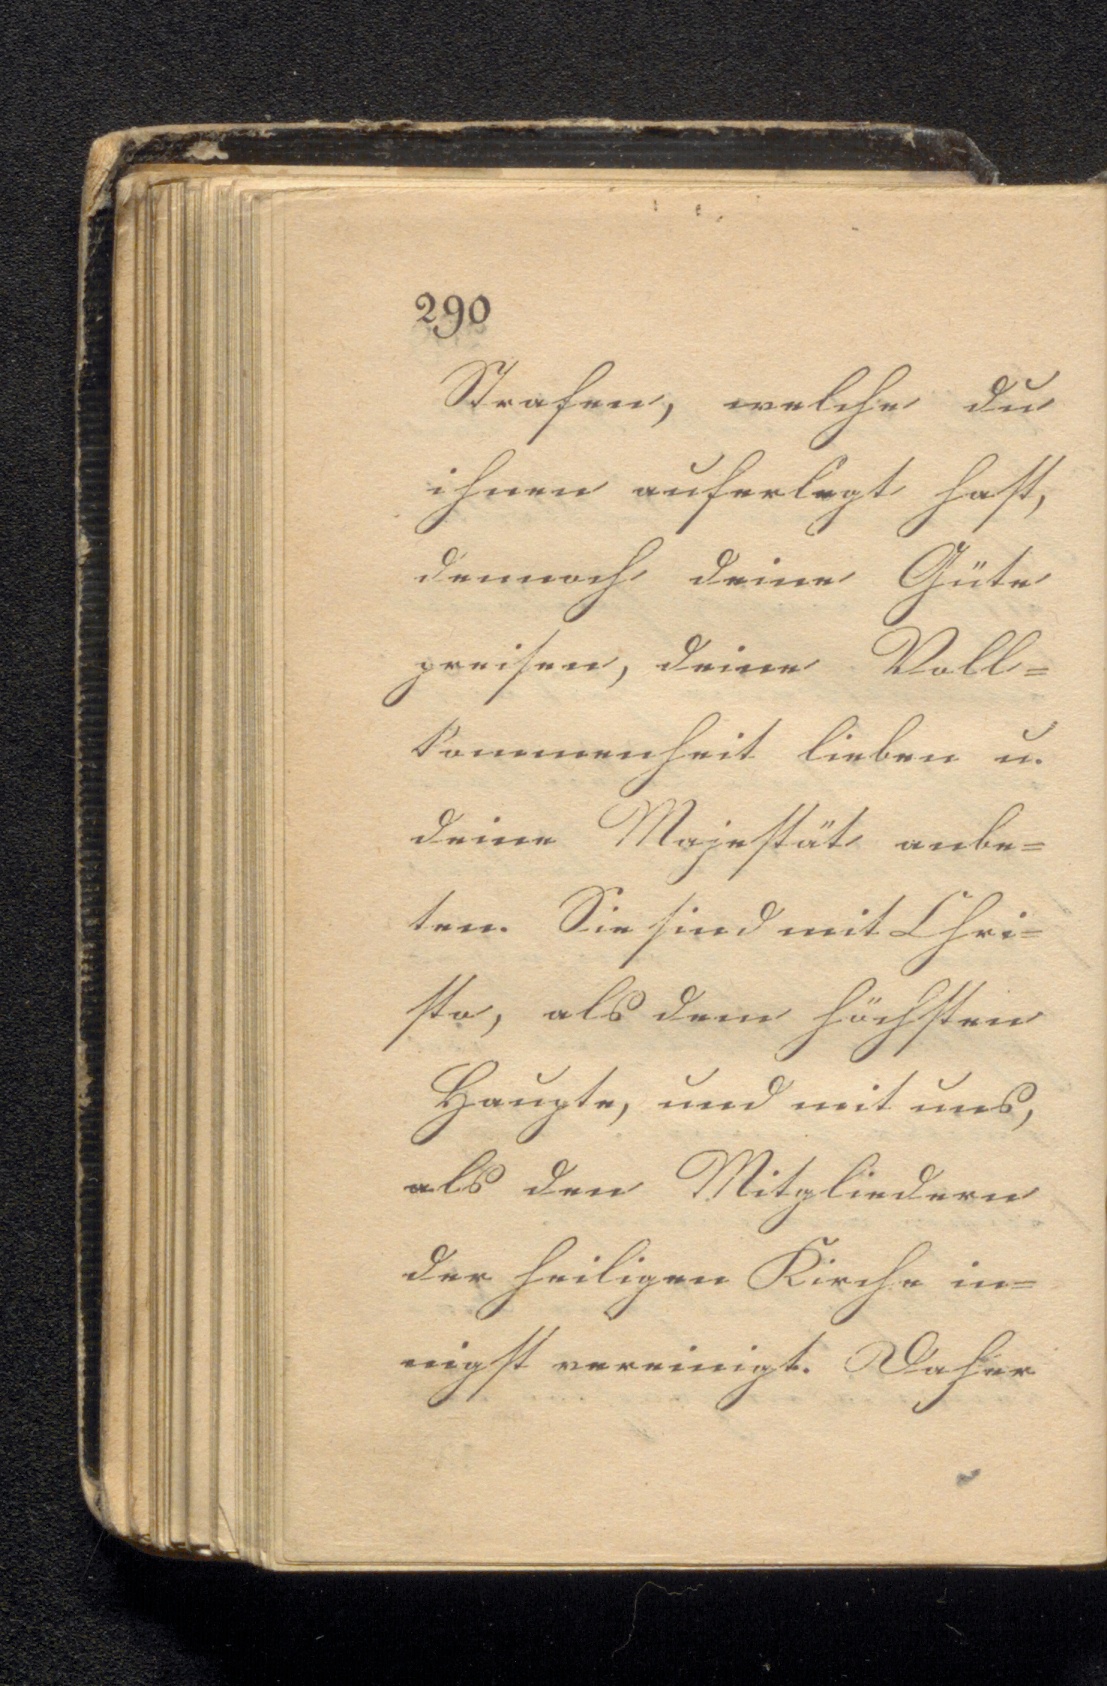 290
Strafen, welche du
ihnen auferlegt hast,
dennoch deine Güte
preisen, deine Voll=
kommenheit lieben u.
deine Majestät anbe=
ten. Sie sind mit Chri=
sto, als dem höchsten
Haupte, und mit uns,
als den Mitgliedern
der heiligen Kirche in=
nigst vereinigt. Daher